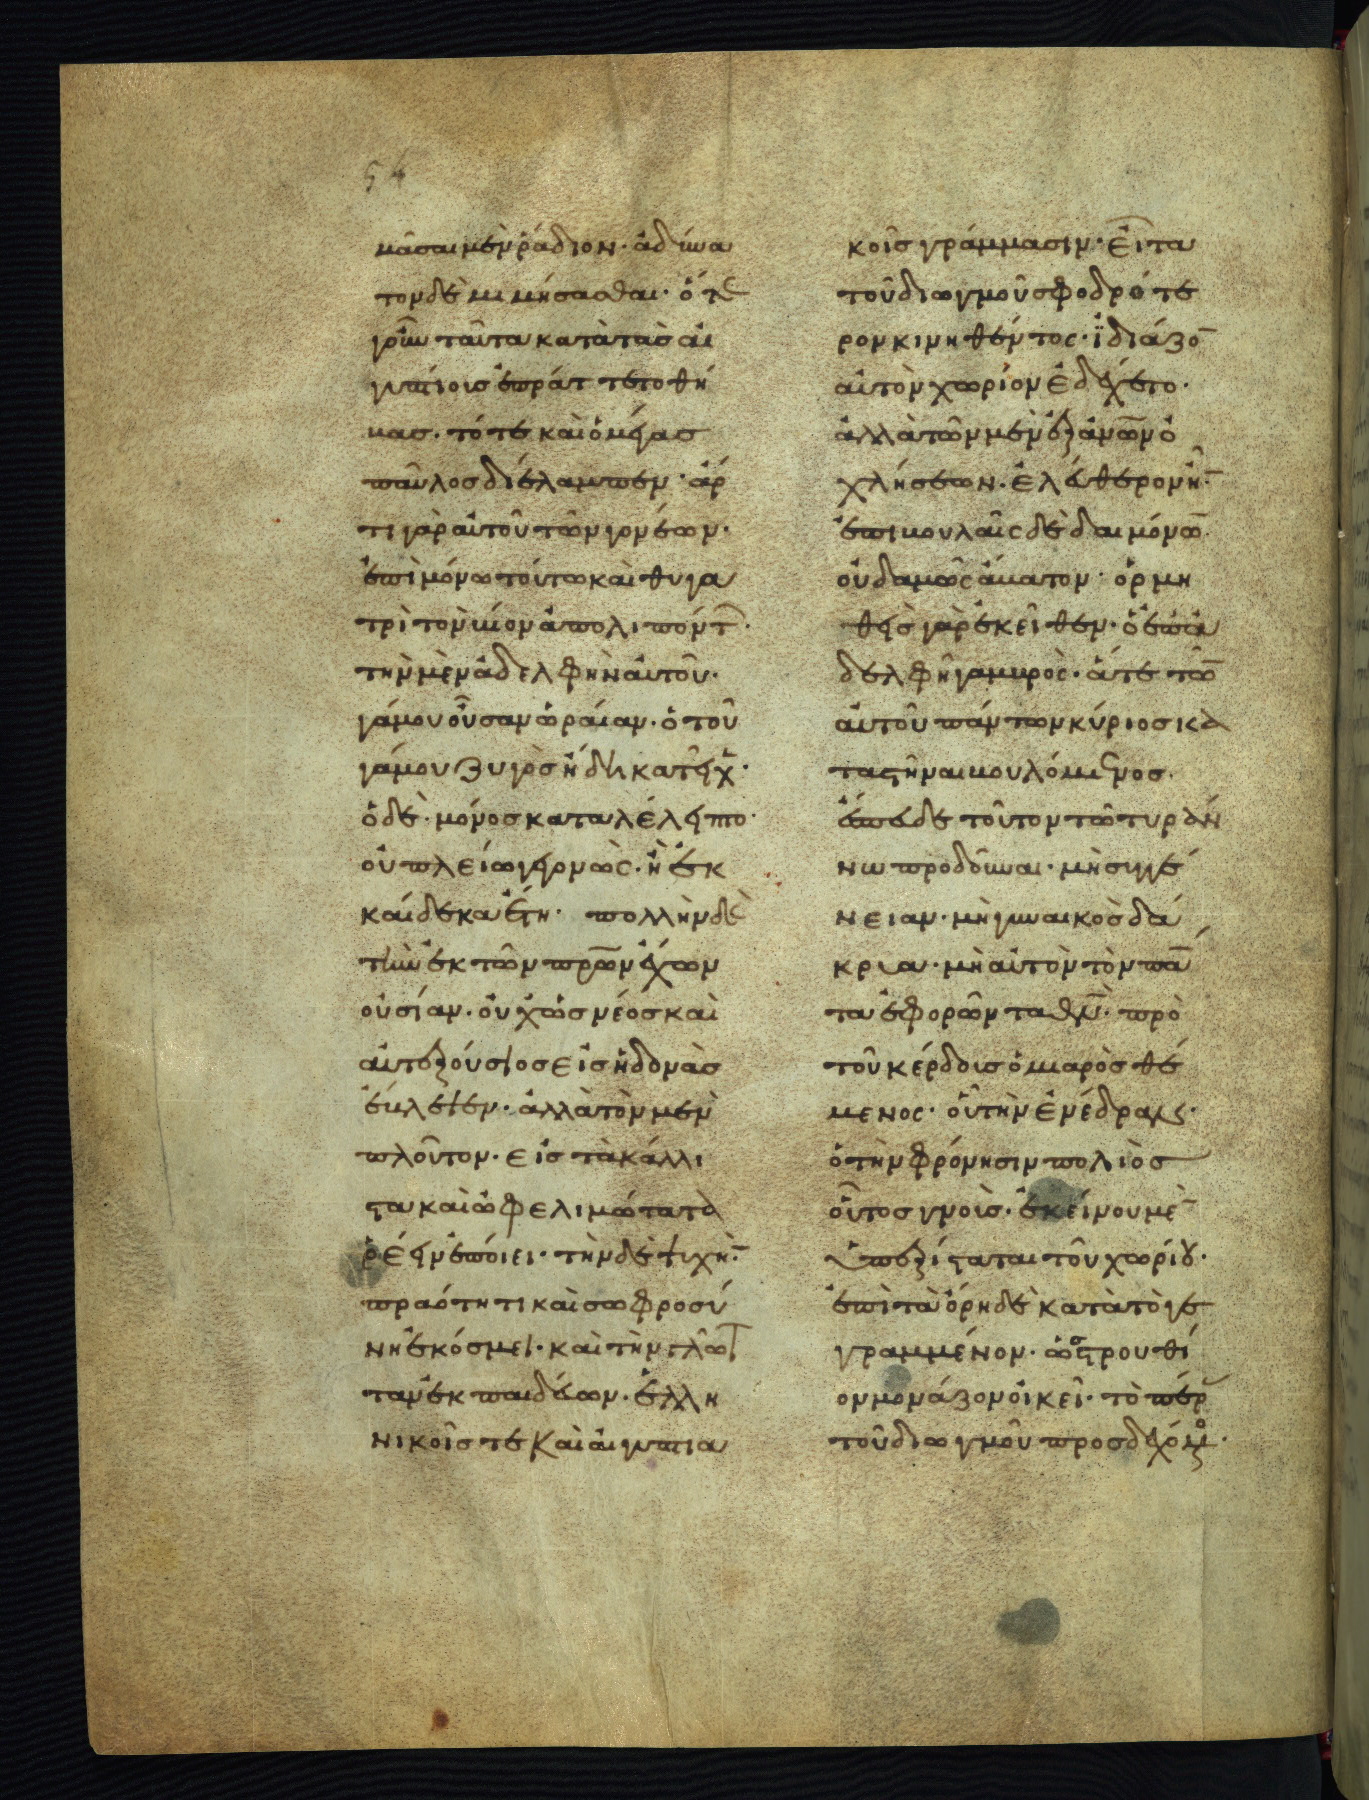 54
μᾶσαι μὲν ῥάδιον· ἀδύνα
τον δὲ μιμήσασθαι· ὅτε
γοῦν ταῦτα κατὰ τὰς αἰ
γυπτίοις ἐπράττετο θή
κας. τότε καὶ ὁ μέγας
παῦλος διέλαμπεν· ἄρ
τι γὰρ αὐτοῦ τῶν γονέων.
ἐπὶ μόνω τούτω καὶ θυγα
τρὶ τὸν βίον ἀπολιπόντ̅.
τὴν μὲν ἀδελφὴν αὐτοῦ.
γάμου οὖσαν ὡραίαν. ὁ τοῦ
γάμου ζυγὸς ἤδη κατεῖχ̅.
ὁ δὲ μόνος καταλέλειπτο.
οὐ πλείω γεγονὼς. ἢ ἑκ
καίδεκα ἔτη· πολλὴν δὲ
τὴν ἐκ τῶν προγόνων ἔχων
οὐσίαν. οὐχ ὡς νέος καὶ
αὐτεξούσιος εἰς ἡδονὰς
ἔβλεψεν. ἀλλὰ τὸν μὲν
πλοῦτον. εἰς τὰ κάλλι
στα καὶ ὠφελιμώτατα
ῥέειν ἐποίει· τὴν δὲ ψυχὴ̅·
πραότητι καὶ σωφροσύ
νη ἐκόσμει. καὶ τὴν γλῶτ
ταν ἐκ παιδείων. ἑλλη
νικοῖς τε καὶ αἰγυπτια
κοῖς γράμμασιν. εἶτα
τοῦ διωγμοῦ σφοδρότε
ρον κινηθέντος. ἰδιάζο̅
αὐτὸν χωρίον ἐδέχετο.
ἀλλὰ τῶν μὲν ἐξ ἀνω̅ν ὀ
χλήσεων. ἐλεύθερον ἦ̅.
ἐπιβουλαῖς δὲ δαιμόνω̅.
οὐδαμῶς ἄβατον· ὁρμη
θεὶς γὰρ ἐκεῖθεν. ὁ ἐπ' ἀ
δελφῆ γαμβρὸς. ἅτε τῶ̅
αὐτοῦ πάντων κύριος κα
ταστῆναι βουλόμενος.
ἔπειδε τοῦτον τῶ τυράν
νω προδοῦναι. μὴ συγγέ
νειαν. μὴ γυναικὸς δά
κρυα. μὴ αὐτὸν τὸν πά̅
τα ἐφορῶντα θ̅ν̅. πρὸ
τοῦ κέρδους ὁ μιαρὸς θέ
μενος. οὗ τὴν ἐνέδραν.
ὁ τὴν φρόνησιν πολιὸς
οὗτος γνοὺς. ἐκείνου μὲ̅
ὑπεξίσταται τοῦ χωρίου.
ἐπὶ τὰ ὄρη δὲ κατὰ τὸ γε
γραμμένον. ὡς στρουθί
ον μονάζον οἰκεῖ. τὸ πέρ
τοῦ διωγμοῦ προσδεχόμ.